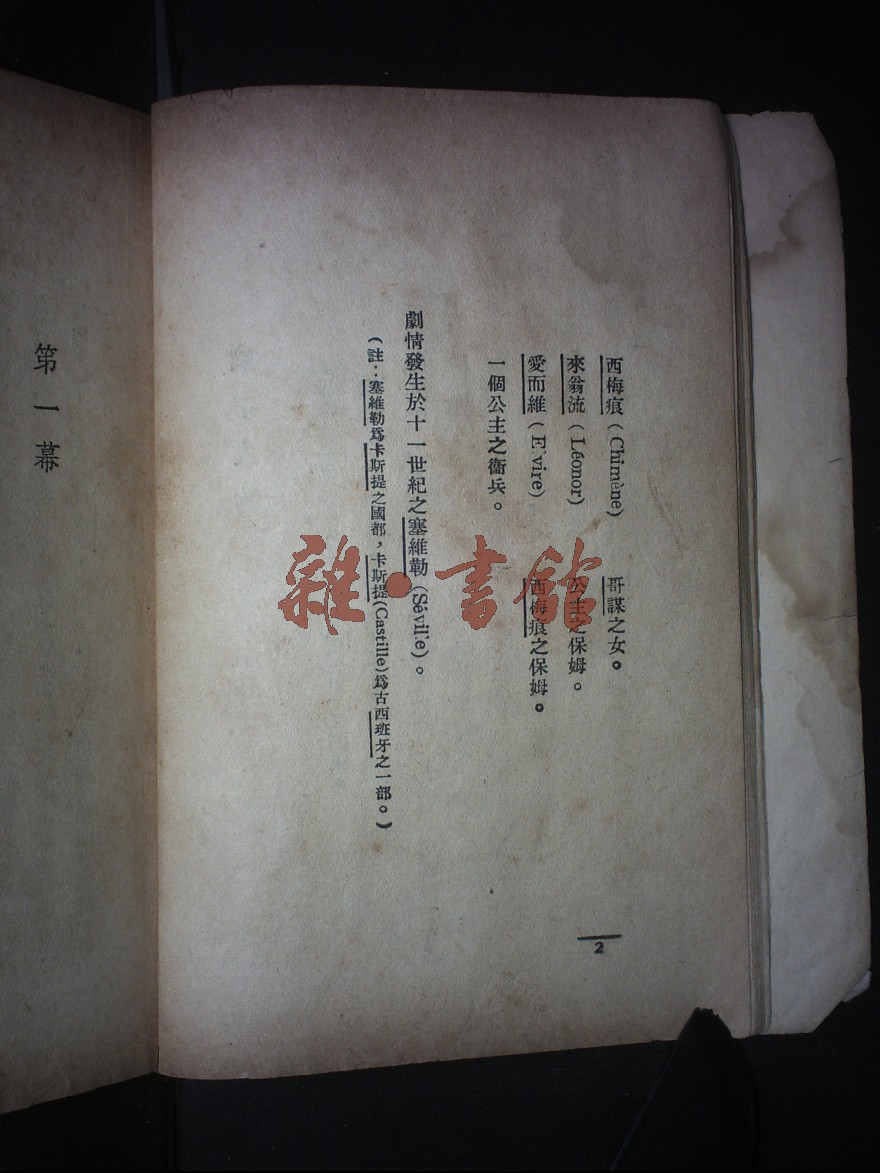 西梅痕(Chimène) 哥謀之女。
來翁流(Léonor) 公主之保姆。
愛而維(E.vire) 西梅痕之保姆。
一個公主之衞兵。
劇情發生於十一世紀之塞維勒(Sévil.e)。
(註:塞維勒爲卡斯提之國都,卡斯提(Castille)爲古西班牙之一部。)
2
第一幕
雜·書館